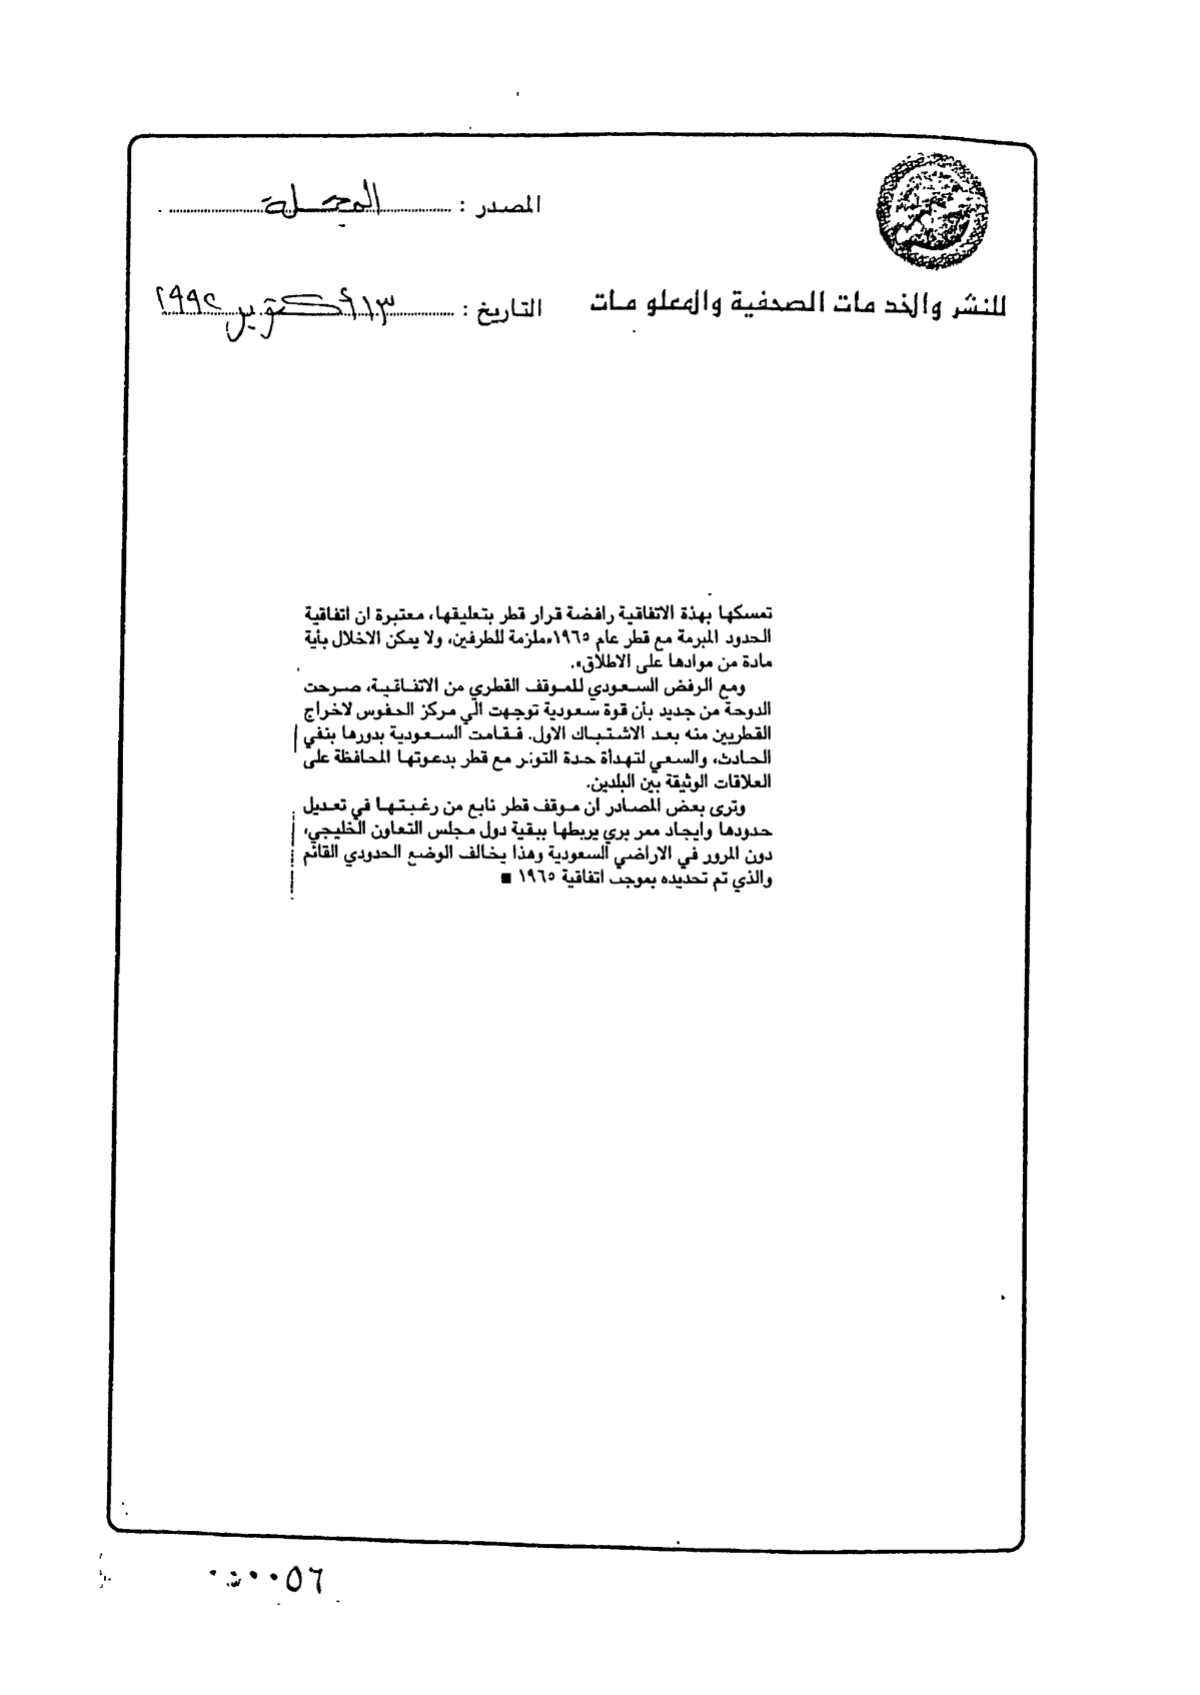 المصدر : المجلة
للنشر والخدمات الصحفية والمعلومات
التاريخ : ١٣ أكتوبر ١٩٩٢
تمسكها بهذة الاتفاقية رافضة قرار قطر بتعليقها، معتبرة ان اتفاقية
الحدود المبرمة مع قطر عام ١٩٦٥ «ملزمة للطرفين، ولا يمكن الاخلال بأية
مادة من موادها على الاطلاق».
ومع الرفض السعودي للموقف القطري من الاتفاقية، صرحت
الدوحة من جديد بأن قوة سعودية توجهت الي مركز الحفوس لاخراج
القطريين منه بعد الاشتباك الاول. فقامت السعودية بدورها بنفي
الحادث، والسعي لتهدأة حدة التوتر مع قطر بدعوتها المحافظة على
العلاقات الوثيقة بين البلدين.
وترى بعض المصادر ان موقف قطر نابع من رغبتها في تعديل
حدودها وايجاد ممر بري يربطها ببقية دول مجلس التعاون الخليجي،
دون المرور في الاراضي السعودية وهذا يخالف الوضع الحدودي القائم
والذي تم تحديده بموجب اتفاقية ١٩٦٥ ■